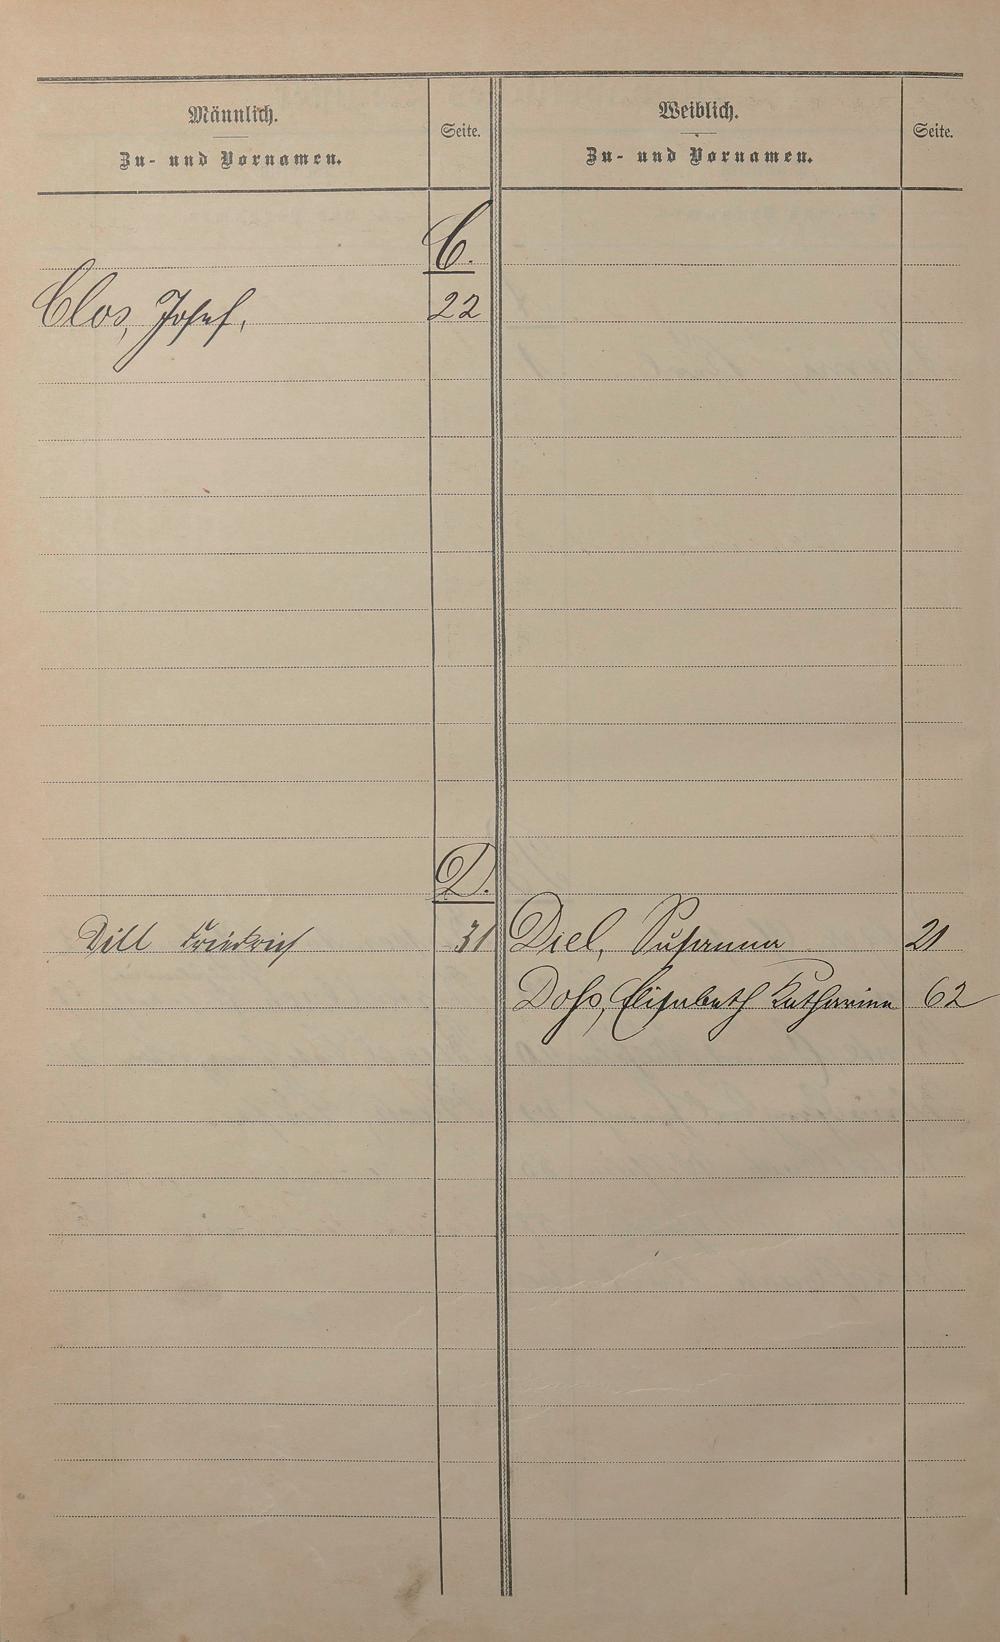 Männlich.
Zu- und Vornamen.
Seite.
Weiblich.
Zu- und Vornamen.
Seite.
C.
Clos, Josef,
22
D.
Dill Friedrich
31
Diel, Susanna
21
Doß, Elisabeth Katharina
62